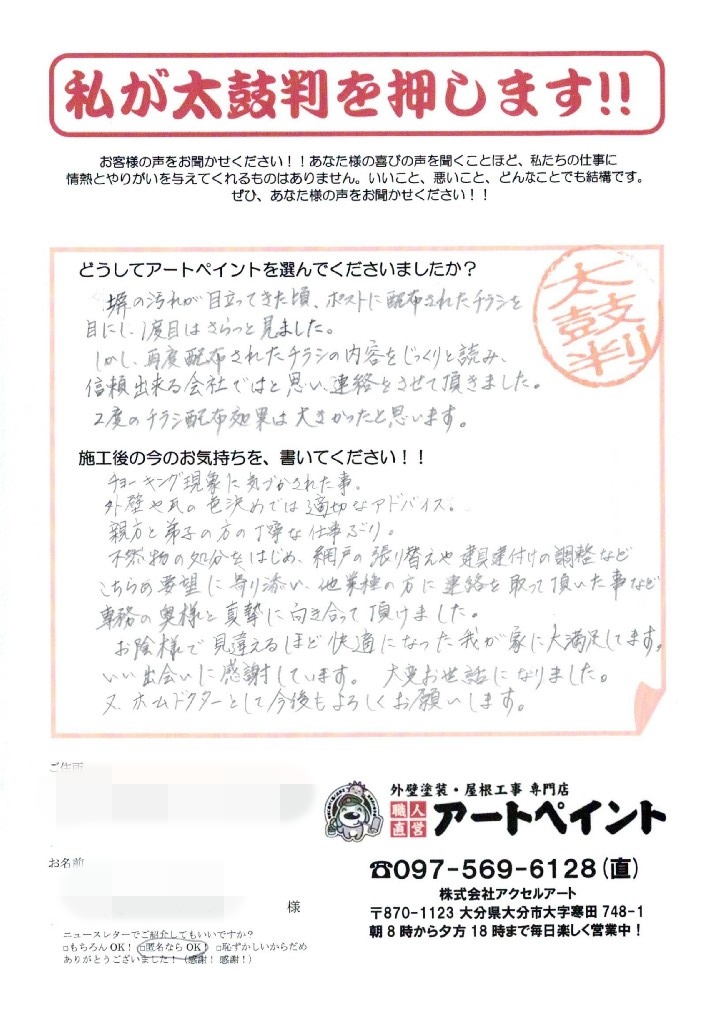 私が太鼓判を押します!!
お客様の声をお聞かせください！！あなた様の喜びの声を聞くことほど、私たちの仕事に
情熱とやりがいを与えてくれるものはありません。いいこと、悪いこと、どんなことでも結構です。
ぜひ、あなた様の声をお聞かせください！！
どうしてアートペイントを選んでくださいましたか？
太鼓判
塀の汚れが目立ってきた頃、ポストに配布されたチラシを
目にし、1度目はさらっと見ました。
しかし、再度配布されたチラシの内容をじっくりと読み、
信頼出来る会社ではと思い、連絡をさせて頂きました。
2度のチラシ配布効果は大きかったと思います。
施工後の今のお気持ちを、書いてください！！
チョーキング現象に気づかされた事。
外壁や瓦の色決めでは適切なアドバイス。
親方と弟子の方の丁寧な仕事ぶり。
不燃物の処分をはじめ、網戸の張り替えや建具建付けの調整など
こちらの要望に寄り添い、他業種の方に連絡を取って頂いた事など
専務の奥様と真摯に向き合って頂けました。
お陰様で見違えるほど快適になった我が家に大満足してます。
いい出会いに感謝しています。 大変お世話になりました。
又、ホームドクターとして今後もよろしくお願いします。
ご住所
お名前
様
ニュースレターでご紹介してもいいですか？
□もちろんOK！ □匿名ならOK！ □恥ずかしいからだめ
ありがとうございました！（感謝！感謝！）
外壁塗装・屋根工事 専門店
職人直営 アートペイント
☎097-569-6128(直)
株式会社アクセルアート
〒870-1123 大分県大分市大字寒田 748-1
朝8時から夕方18時まで毎日楽しく営業中！